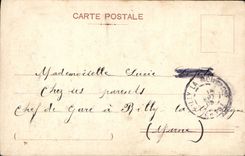 CARTE POSTALE
Mademoiselle Lucie
Chez ses parents
Chef de Gare à Billy la
(Marne)